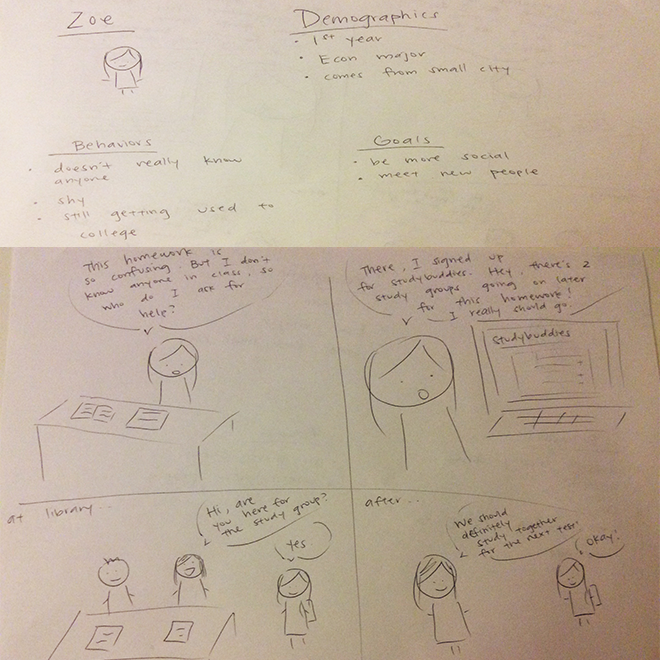 Zoe
Demographics
• 1st year
• Econ major
• comes from small city
Behaviors
• doesn't really know
anyone
• shy
• still getting used to
college
Goals
• be more social
• meet new people
This homework is
so confusing. But I don't
know anyone in class, so
who do I ask for
help?
There, I signed up
for studybuddies. Hey, there's 2
study groups going on later
for this homework!
I really should go.
studybuddies
at library..
Hi, are
you here for
the study group?
Yes
after..
We should
definitely
study together
for the next test!
Okay!